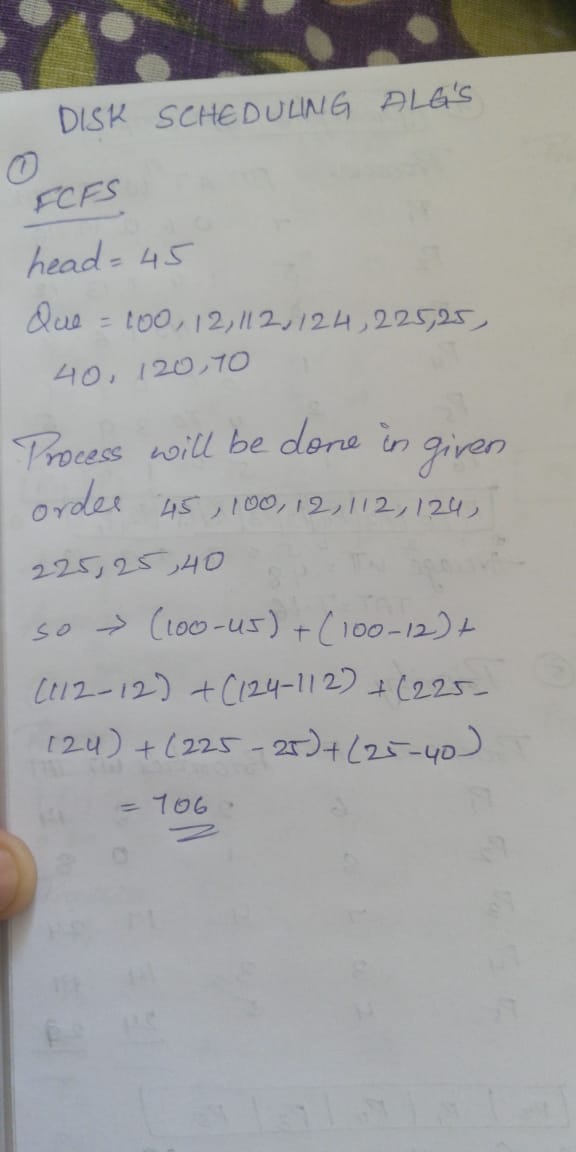 DISK SCHEDULING ALG'S
①
FCFS
head = 45
Que = 100, 12, 112, 124, 225, 25,
40, 120, 70
Process will be done in given
order 45, 100, 12, 112, 124,
225, 25, 40
so → (100-45) + (100-12) +
(112-12) + (124-112) + (225-
124) + (225-25) + (25-40)
= 706